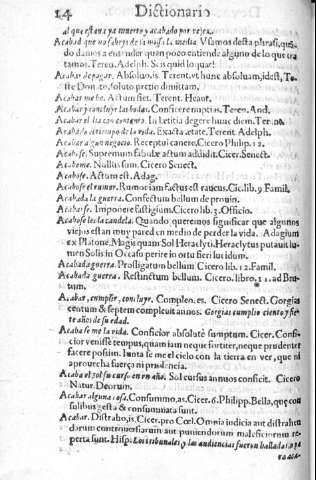 14 Dictionario
al que estaua ya muerto y acabado por vejez.
Acabad que no sabeys de la missa la media. Vsamos desta phrasi, quã
do damos a entender quan poco entiende alguno de lo que tra
tamos. Teren. Adelph. Si is quid loquar!
Acabar de pagar. Absoluo, is Terent. vt hunc absoluam, idest, 
ste Donato, soluto pretio dimittam.
Acabar me he. Actum siet. Terent. Heaut.
Acabar y concluyr las bodas. Conficere nuptias. Teren. And.
Acabar el dia con contento. In lætitia degere hunc diem. Teren.
Acabado el tiempo de la vida. Exacta ætate. Terent. Adelph.
Acabar algun negocio. Receptui canere. Cicero Philip. 12.
Acabose. Supremum fabulæ actum addidit. Cicer. Senect.
Acabome. Nullus sum. Cicero Senect.
Acabose. Actum est. Adag.
Acabose el rumor. Rumor iam factus est raucus. Cic. lib. 9 Famil.
Acabada la guerra. Confectum bellum de prouin.
Acabarse. Impone fastigium. Cicero lib. 3. Officio.
Acabose les la candela. Quando queremos significar que algunos
viejos estan muy pared en medio de perder la vida. Adagium
ex Platone. Magis quam Sol Heraclyti. Heraclytus putauit lu-
men Solis in Occaso perire in ortu fieri lucidum.
Acabada guerra. Profligatum bellum Cicero lib. 12. Famil.
Acabada guerra. Restinctum bellum. Cicero. libro. 11. ad Bru-
tum.
Acabar, cumplir, concluyr. Compleo. es. Cicero Senect. Gorgias
centum & septem compleuit annos. Gorgias cumplio ciento y sie
te años de su edad.
Acaba se me la vida. Conficior absolutè sumptum. Cicer. Consi-
cior venisse tempus, quam iam neque fortiter, neque prudenter
facere possim. Iunta se me el cielo con la tierra en ver, que ni
aprouecha fuerça ni prudencia.
Acaba el sol su curso en vn año. Sol cursus annuos conficit. Cicero
Natur. Deorum.
Acabar alguna cosa. Consummo, as. Cicer. 6. Philipp. Bella, quę con
sulibus gesta & consummata sunt.
Acabar. Distraho, is. Cicer. pro Cœl. Omnia iudicia aut distrahen
dorum controuersiarum aut puniendorum maleficiorum re-
perta sunt. Hisp. Los tribunales y las audiencias fueron halladas o pa
ra aca-